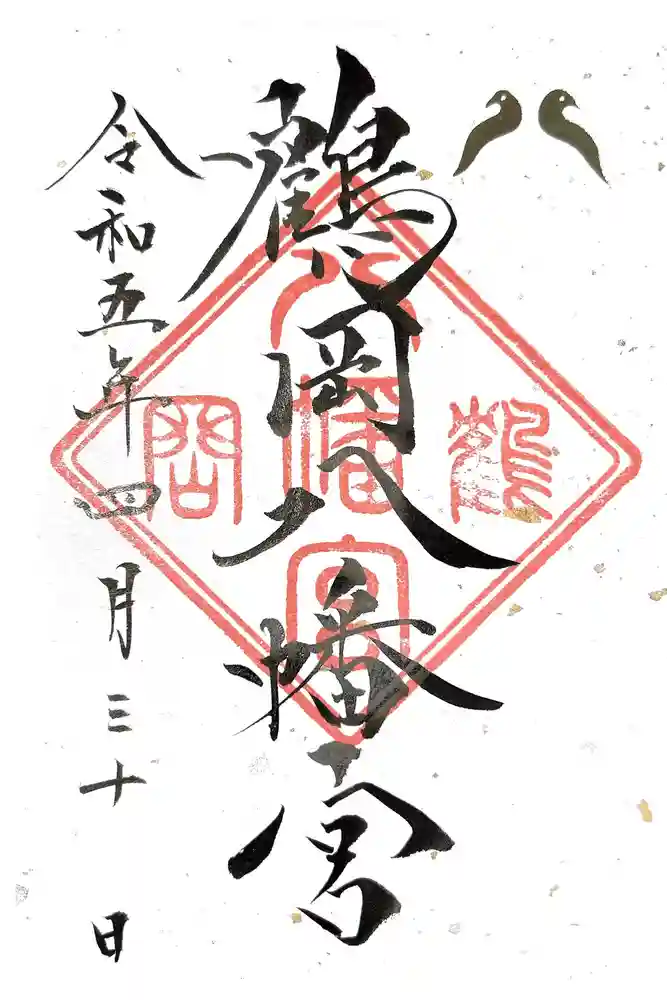 鶴岡八幡宮
鶴
八幡宮
岡
令和五年四月三十日